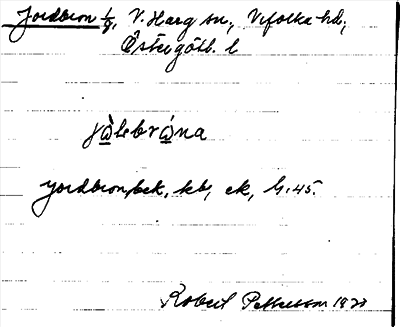 Jordbron 1/8, V. Harg sn, Vifolka hd,
Östergötl. l
jàlebrána
Jordbron, bek, kb, ek, h. 45.
Robert Pettersson 1933